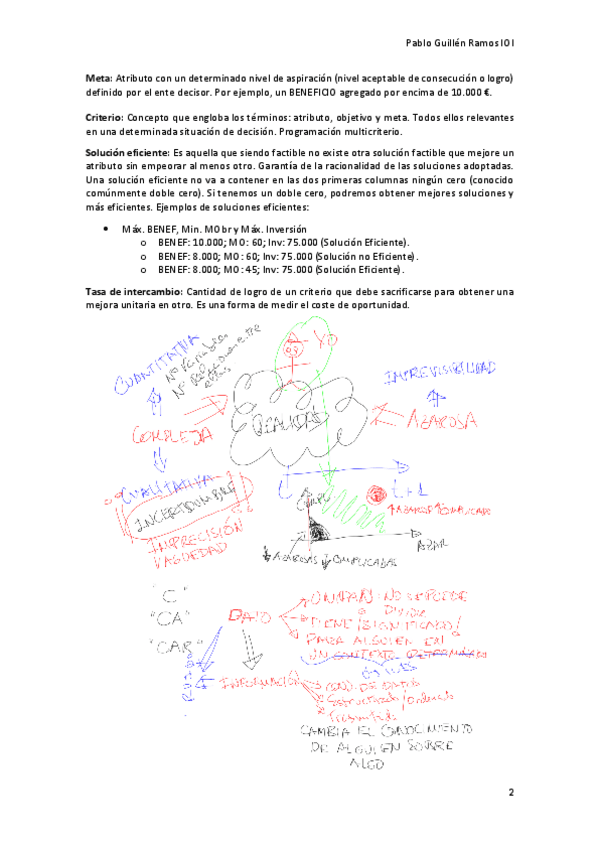 Pablo Guillén Ramos IO I
Meta: Atributo con un determinado nivel de aspiración (nivel aceptable de consecución o logro)
definido por el ente decisor. Por ejemplo, un BENEFICIO agregado por encima de 10.000 €.
Criterio: Concepto que engloba los términos: atributo, objetivo y meta. Todos ellos relevantes
en una determinada situación de decisión. Programación multicriterio.
Solución eficiente: Es aquella que siendo factible no existe otra solución factible que mejore un
atributo sin empeorar al menos otro. Garantía de la racionalidad de las soluciones adoptadas.
Una solución eficiente no va a contener en las dos primeras columnas ningún cero (conocido
comúnmente doble cero). Si tenemos un doble cero, podremos obtener mejores soluciones y
más eficientes. Ejemplos de soluciones eficientes:
• Máx. BENEF, Min. MObr y Máx. Inversión
o BENEF: 10.000; MO: 60; Inv: 75.000 (Solución Eficiente).
o BENEF: 8.000; MO: 60; Inv: 75.000 (Solución no Eficiente).
o BENEF: 8.000; MO: 45; Inv: 75.000 (Solución Eficiente).
Tasa de intercambio: Cantidad de logro de un criterio que debe sacrificarse para obtener una
mejora unitaria en otro. Es una forma de medir el coste de oportunidad.
CUANTITATIVA
Nº Variables
Nº Relaciones entre
ellas
A - YO
IMPREVISIBILIDAD
COMPLEJA
REALIDAD
AZAROSA
CUALITATIVA
INCERTIDUMBRE
IMPRECISIÓN
VAGUEDAD
AZAR
"C"
"CA"
"CAR"
DATO
UNIDAD: NO SE PUEDE
DIVIDIR
TIENE SIGNIFICADO
PARA ALGUIEN EN
UN CONTEXTO DETERMINADO
INFORMACIÓN
CONJ. DE DATOS
Estructurado/ordenado
CAMBIA EL CONOCIMIENTO
DE ALGUIEN SOBRE
ALGO
2